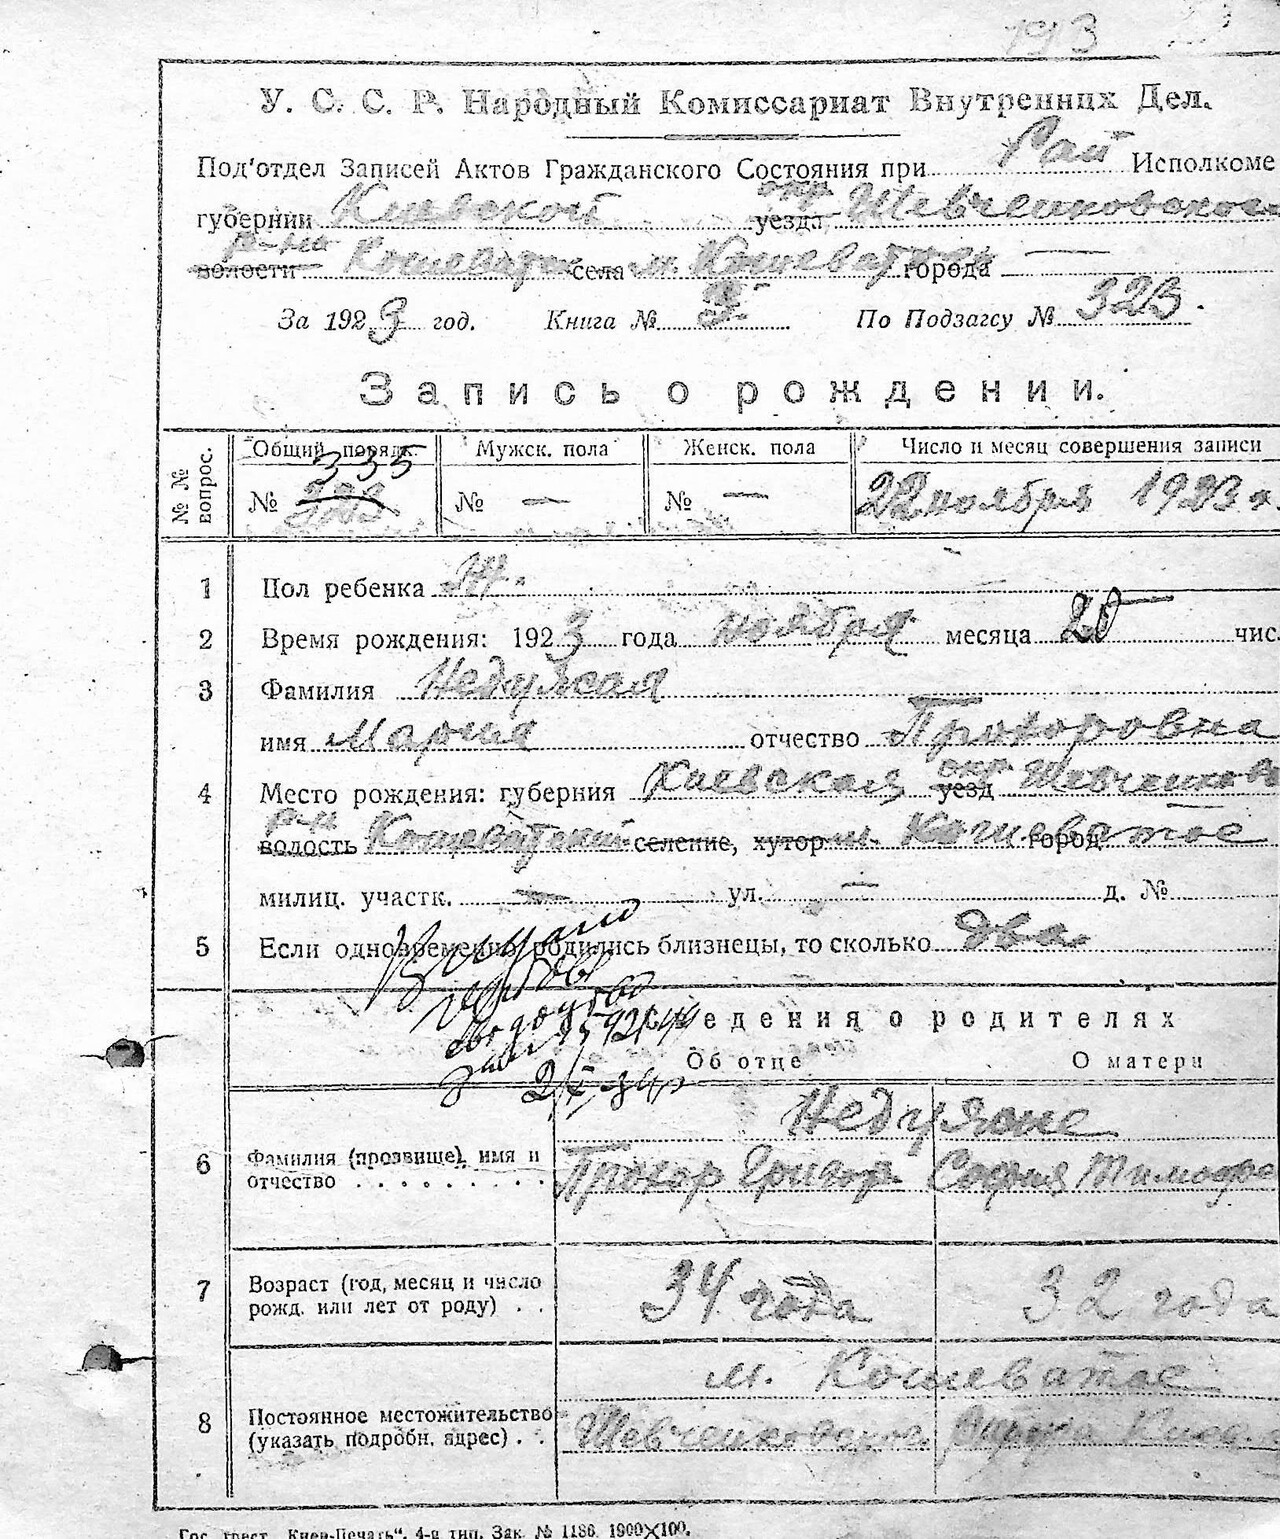 193
У. С. С. Р. Народный Комиссариат Внутренних Дел.
Под'отдел Записей Актов Гражданского Состояния при Рай Исполкоме
губернии Киевской окр уезда Шевченковского
р-на волости Кошеватск села м. Кошеватое города —
За 1923 год. Книга № 3 По Подзагсу № 323.
Запись о рождении.
№№ вопрос. Общий порядк. Мужск. пола Женск. пола Число и месяц совершения записи
№ 323 335 № — № — 22 ноября 1923 г.
1 Пол ребенка Ж.
2 Время рождения: 1923 года ноября месяца 20 чис.
3 Фамилия Недужая
имя Мария отчество Прохоровна
4 Место рождения: губерния Киевская окр уезд Шевченков
р-н волость Кошеватский селение, хутор м. Кошеватое город
милиц. участк. — ул. — д. №
5 Если одновременно родились близнецы, то сколько два
Выдано
Сведения о родителях
Об отце О матери
Недужие
6 Фамилия (прозвище), имя и отчество Прохор Григор. София Тимофе
7 Возраст (год, месяц и число рожд. или лет от роду) 34 года 32 года
м. Кошеватое
8 Постоянное местожительство (указать подробн. адрес) Шевченковског. Округа Киев.
Гос. трест „Киев-Печать“, 4-я тип. Зак. № 1186. 1900×100.